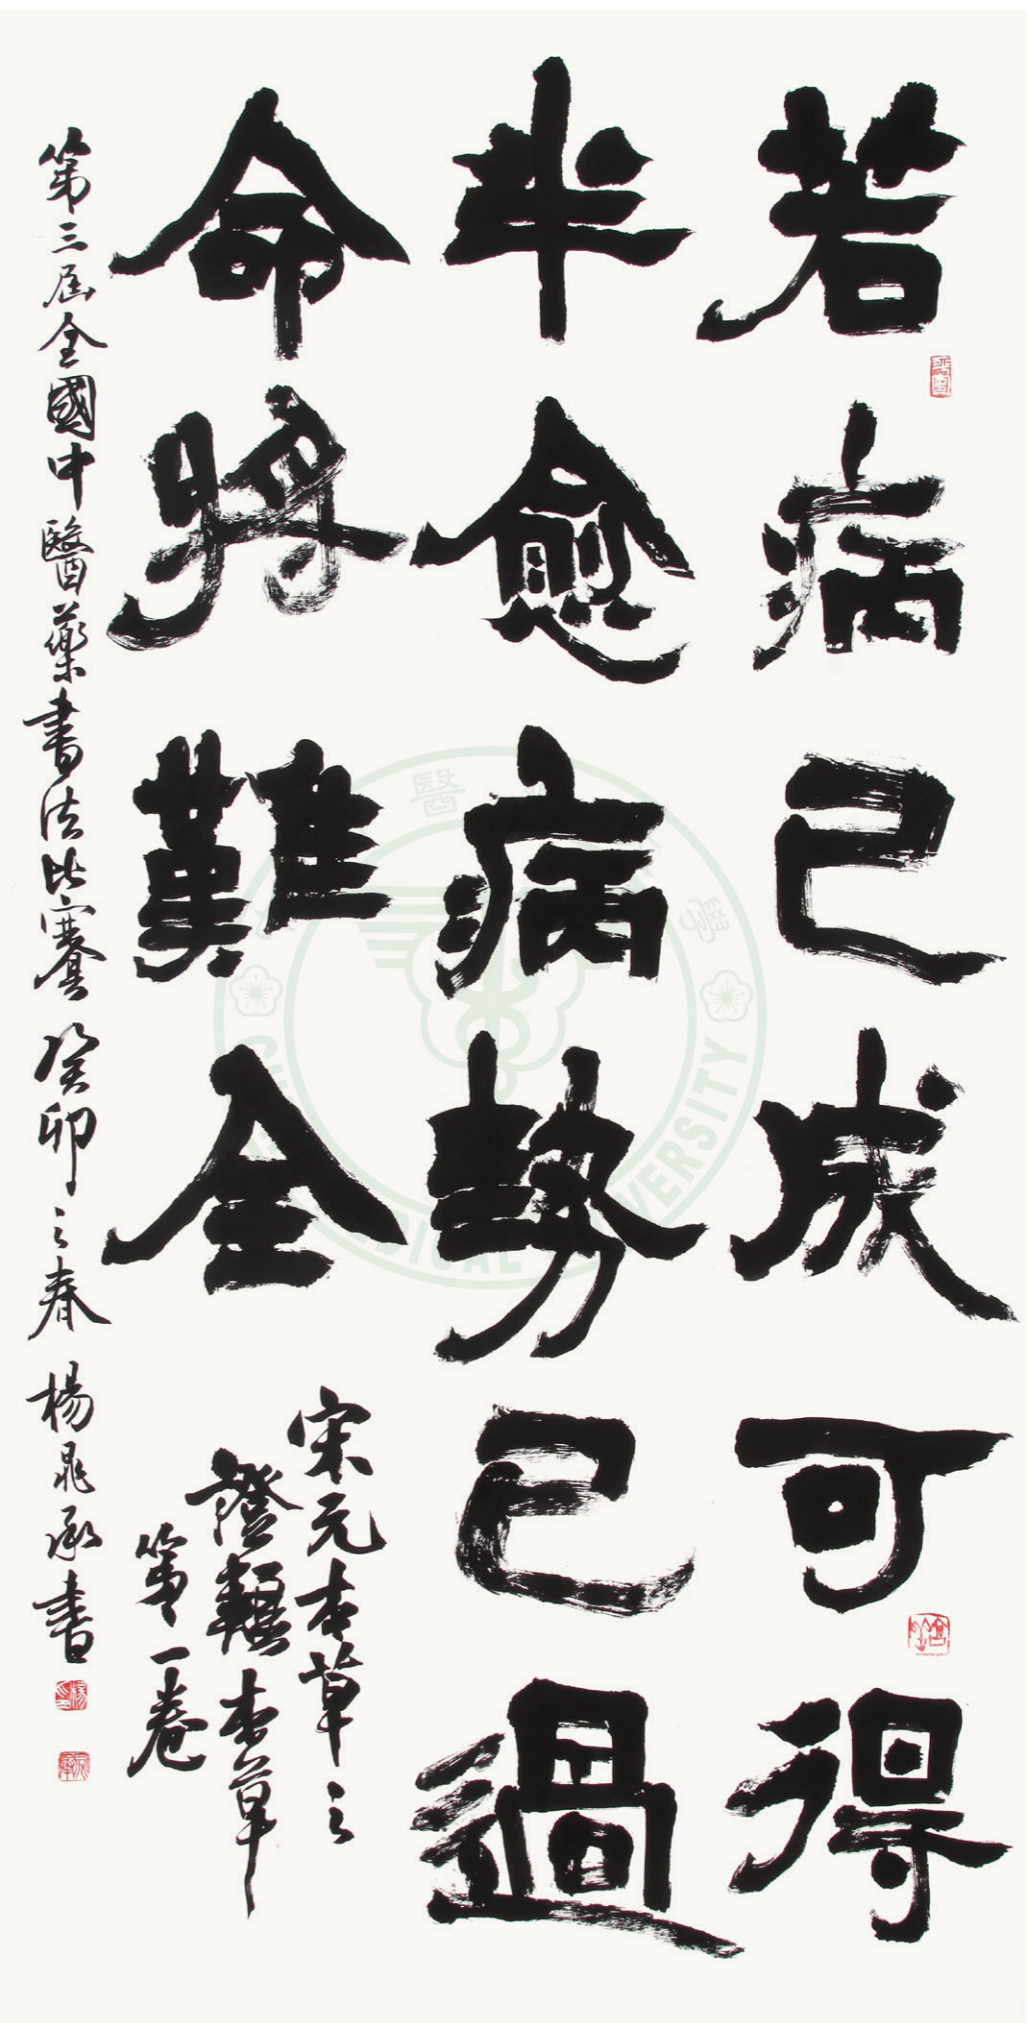 若病已成可得
半愈病勢已過
命將難全
宋元本草之
證類本草
第一卷
第三屆全國中醫藥書法比賽 癸卯之春 楊晁承書
醫 學
UNIVERSITY